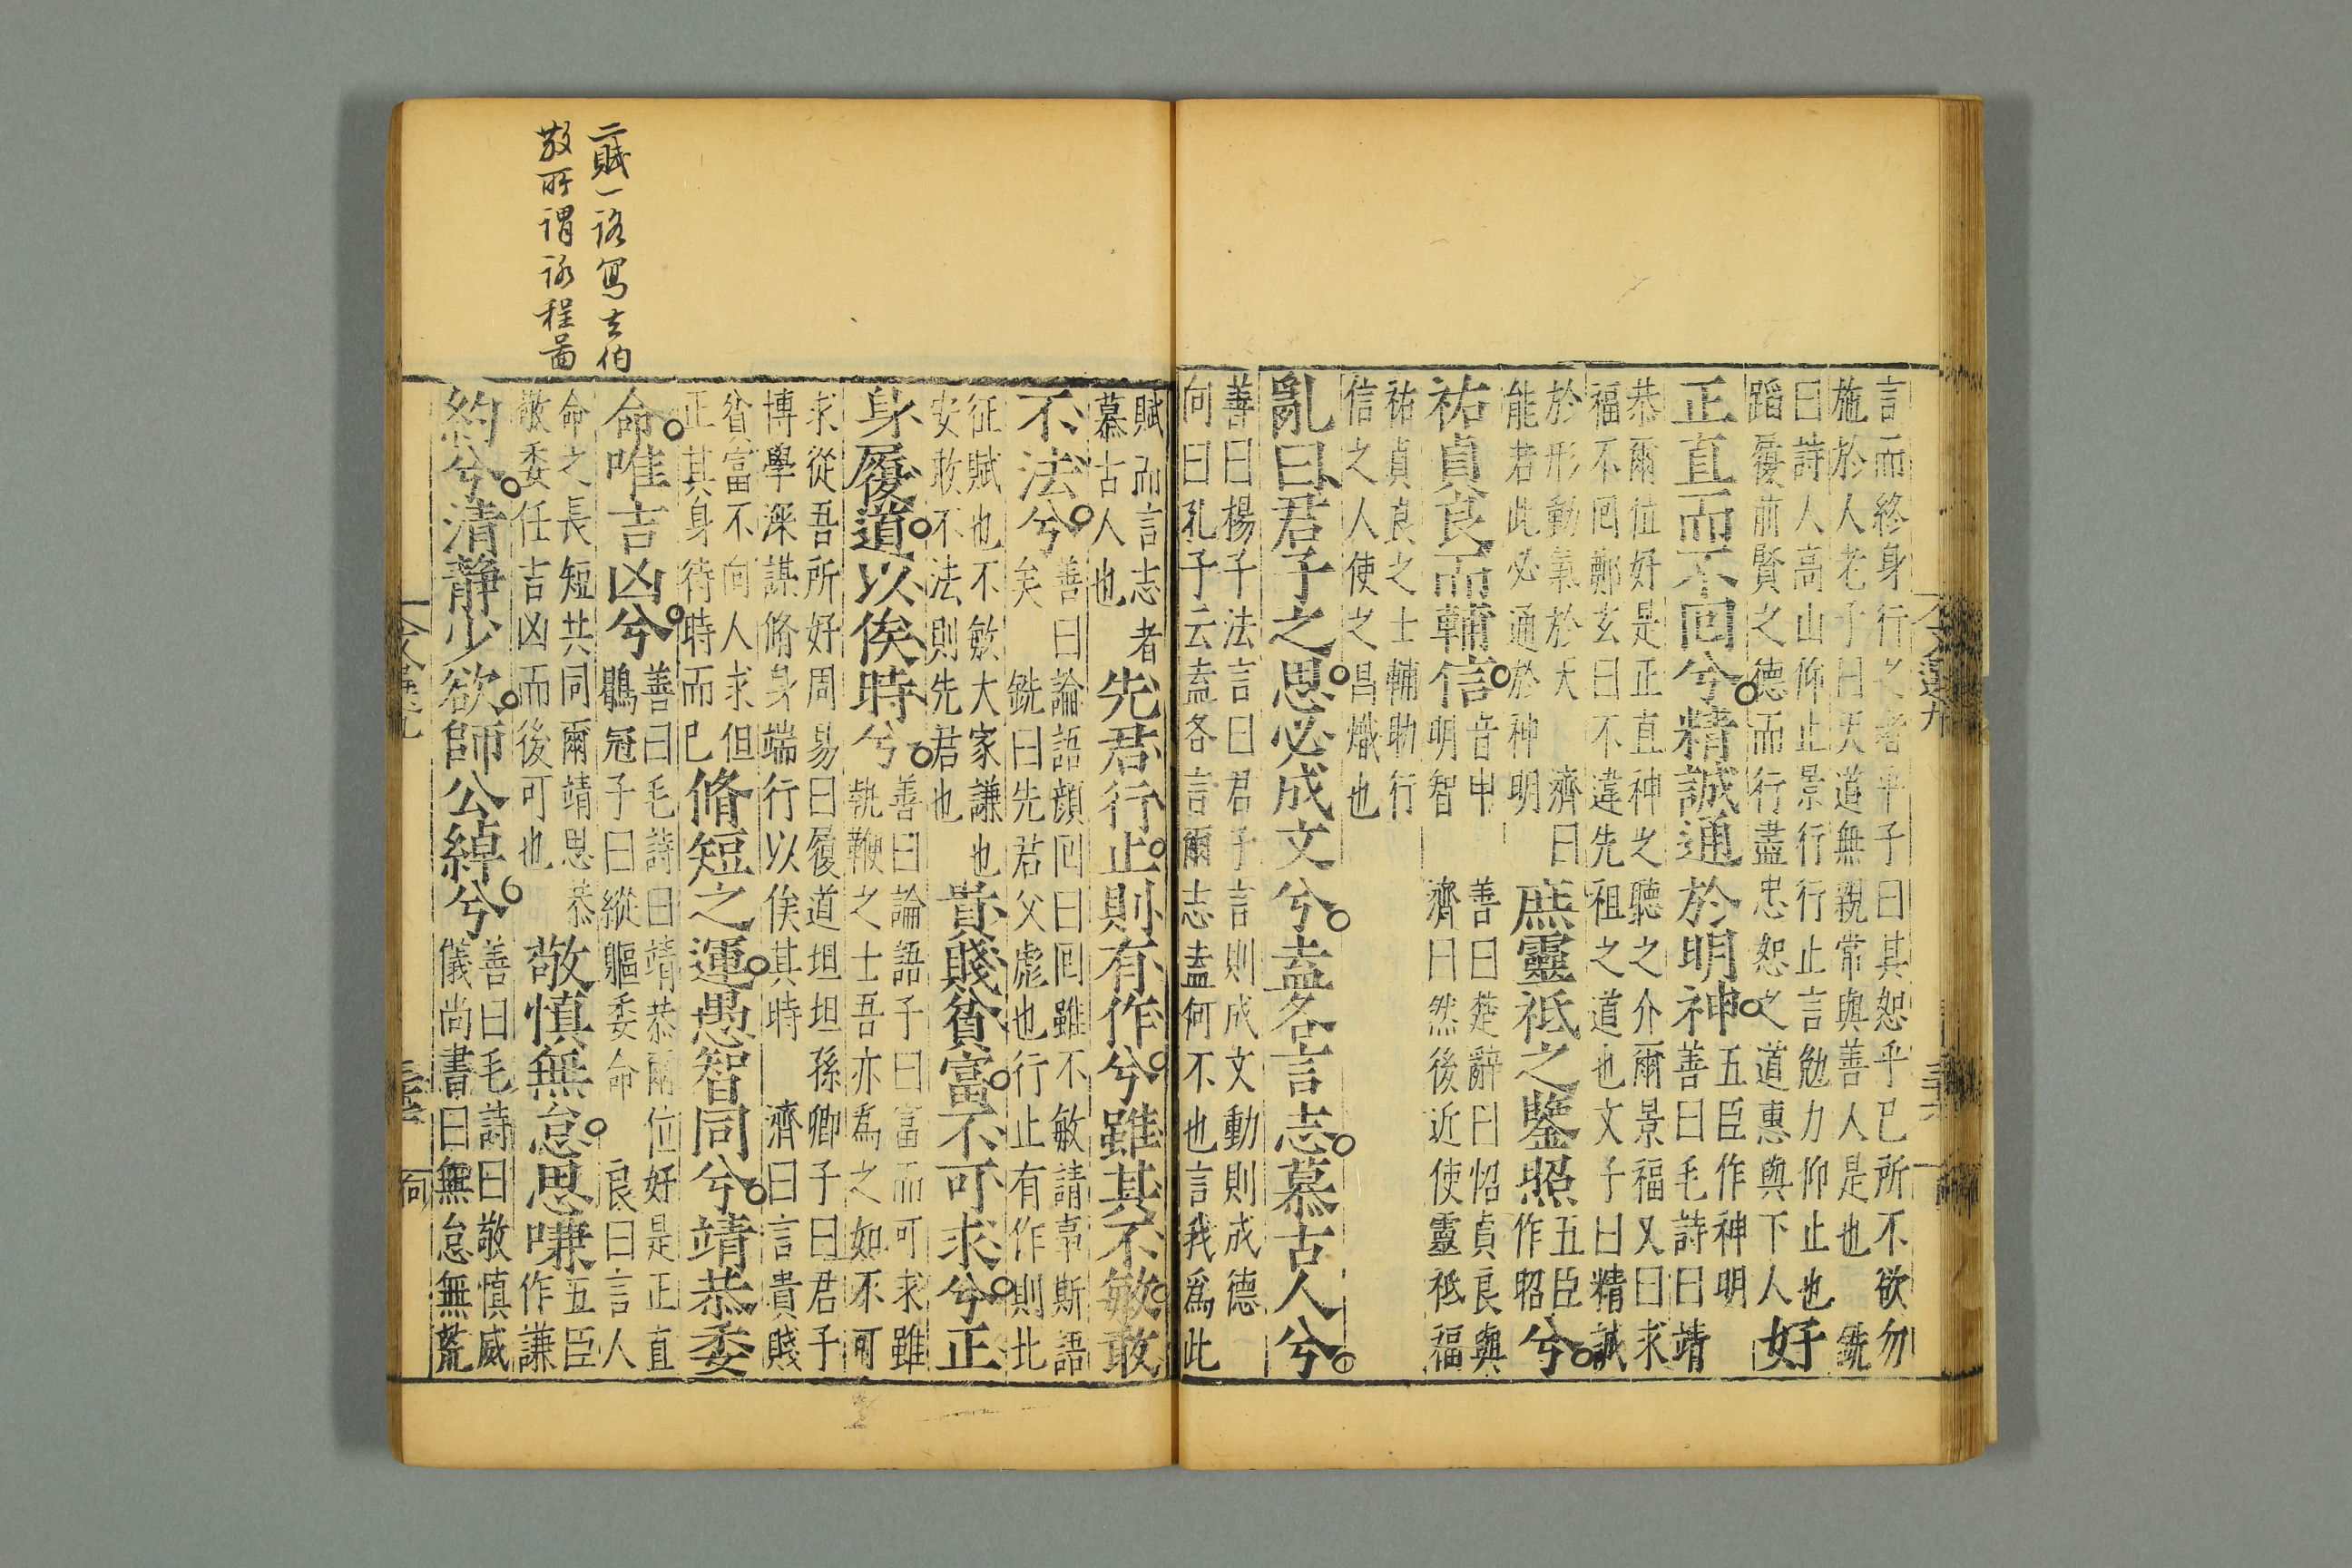 言而終身行之者乎子曰其恕乎已所不欲勿
施於人老子曰天道無親常與善人是也　銑
曰詩人高山仰止景行行止言勉力仰止也
蹈履前賢之德而行盡忠恕之道惠與下人好
正直而不回兮精誠通於明神五臣作神明
善曰毛詩曰靖
恭爾位好是正直神之聽之介爾景福又曰求
福不回鄭玄曰不違先祖之道也文子曰精誠
於形動氣於天　濟曰
能若此必通於神明
庶靈祗之鑒照五臣
作昭兮
祐貞良而輔信音申
明智
善曰楚辭曰招貞良與
濟曰然後近使靈祗福
祐貞良之士輔助行
信之人使之昌熾也
亂曰君子之思必成文兮盍各言志慕古人兮
善曰楊子法言曰君子言則成文動則成德
向曰孔子云盍各言爾志盍何不也言我為此
賦而言志者
慕古人也
先君行止則有作兮雖其不敏敢
不法兮善曰論語顏回曰回雖不敏請事斯語
矣　銑曰先君父彪也行止有作則北
征賦也不敏大家謙也
安敢不法則先君也
貴賤貧富不可求兮正
身履道以俟時兮善曰論語子曰富而可求雖
執鞭之士吾亦為之如不可
求從吾所好周易曰履道坦坦孫卿子曰君子
博學深謀脩身端行以俟其時　濟曰言貴賤
貧富不向人求但
正其身待時而已
脩短之運愚智同兮靖恭委
命唯吉凶兮善曰毛詩曰靖恭爾位好是正直
鶡冠子曰縱軀委命　良曰言人
命之長短共同爾靖思恭
敬委任吉凶而後可也
敬慎無怠思嗛五臣
作謙
約兮清靜少欲師公綽兮善曰毛詩曰敬慎威
儀尚書曰無怠無荒
二賦一路寫去伯
敬所謂詠程圖